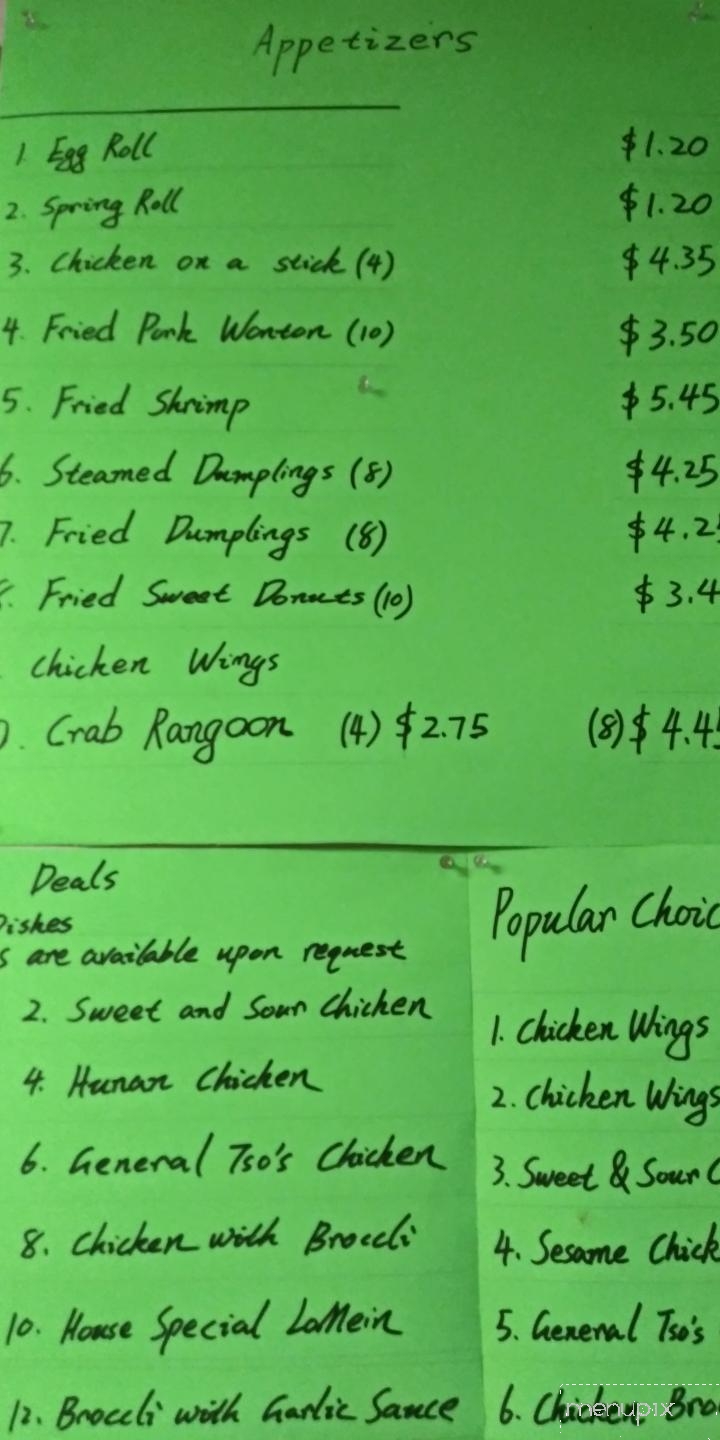 Appetizers
1 Egg Roll $1.20
2. Spring Roll $1.20
3. Chicken on a stick (4) $4.35
4. Fried Pork Wonton (10) $3.50
5. Fried Shrimp $5.45
6. Steamed Dumplings (8) $4.25
7. Fried Dumplings (8) $4.2
Fried Sweet Donuts (10) $3.4
Chicken Wings
. Crab Rangoon (4) $2.75 (8) $4.4
Deals
Dishes
s are available upon request
2. Sweet and Sour Chicken
4. Hunan Chicken
6. General Tso's Chicken
8. Chicken with Broccli
10. House Special LoMein
12. Broccli with Garlic Sauce
Popular Choic
1. Chicken Wings
2. Chicken Wings
3. Sweet & Sour C
4. Sesame Chick
5. General Tso's
6. Chicken Bro
menupix